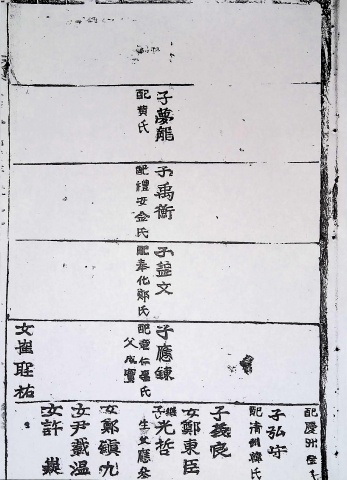 子夢龍
配黄氏
子禹衡
配禮安金氏
子益文
配奉化鄭氏
子應鍊
配 氏
父成
女崔聖祐
配慶州金氏
子弘守
配清州韓氏
子義良
女鄭東臣
繼子光哲
生父應
女鄭鎭九
女尹載溫
女許